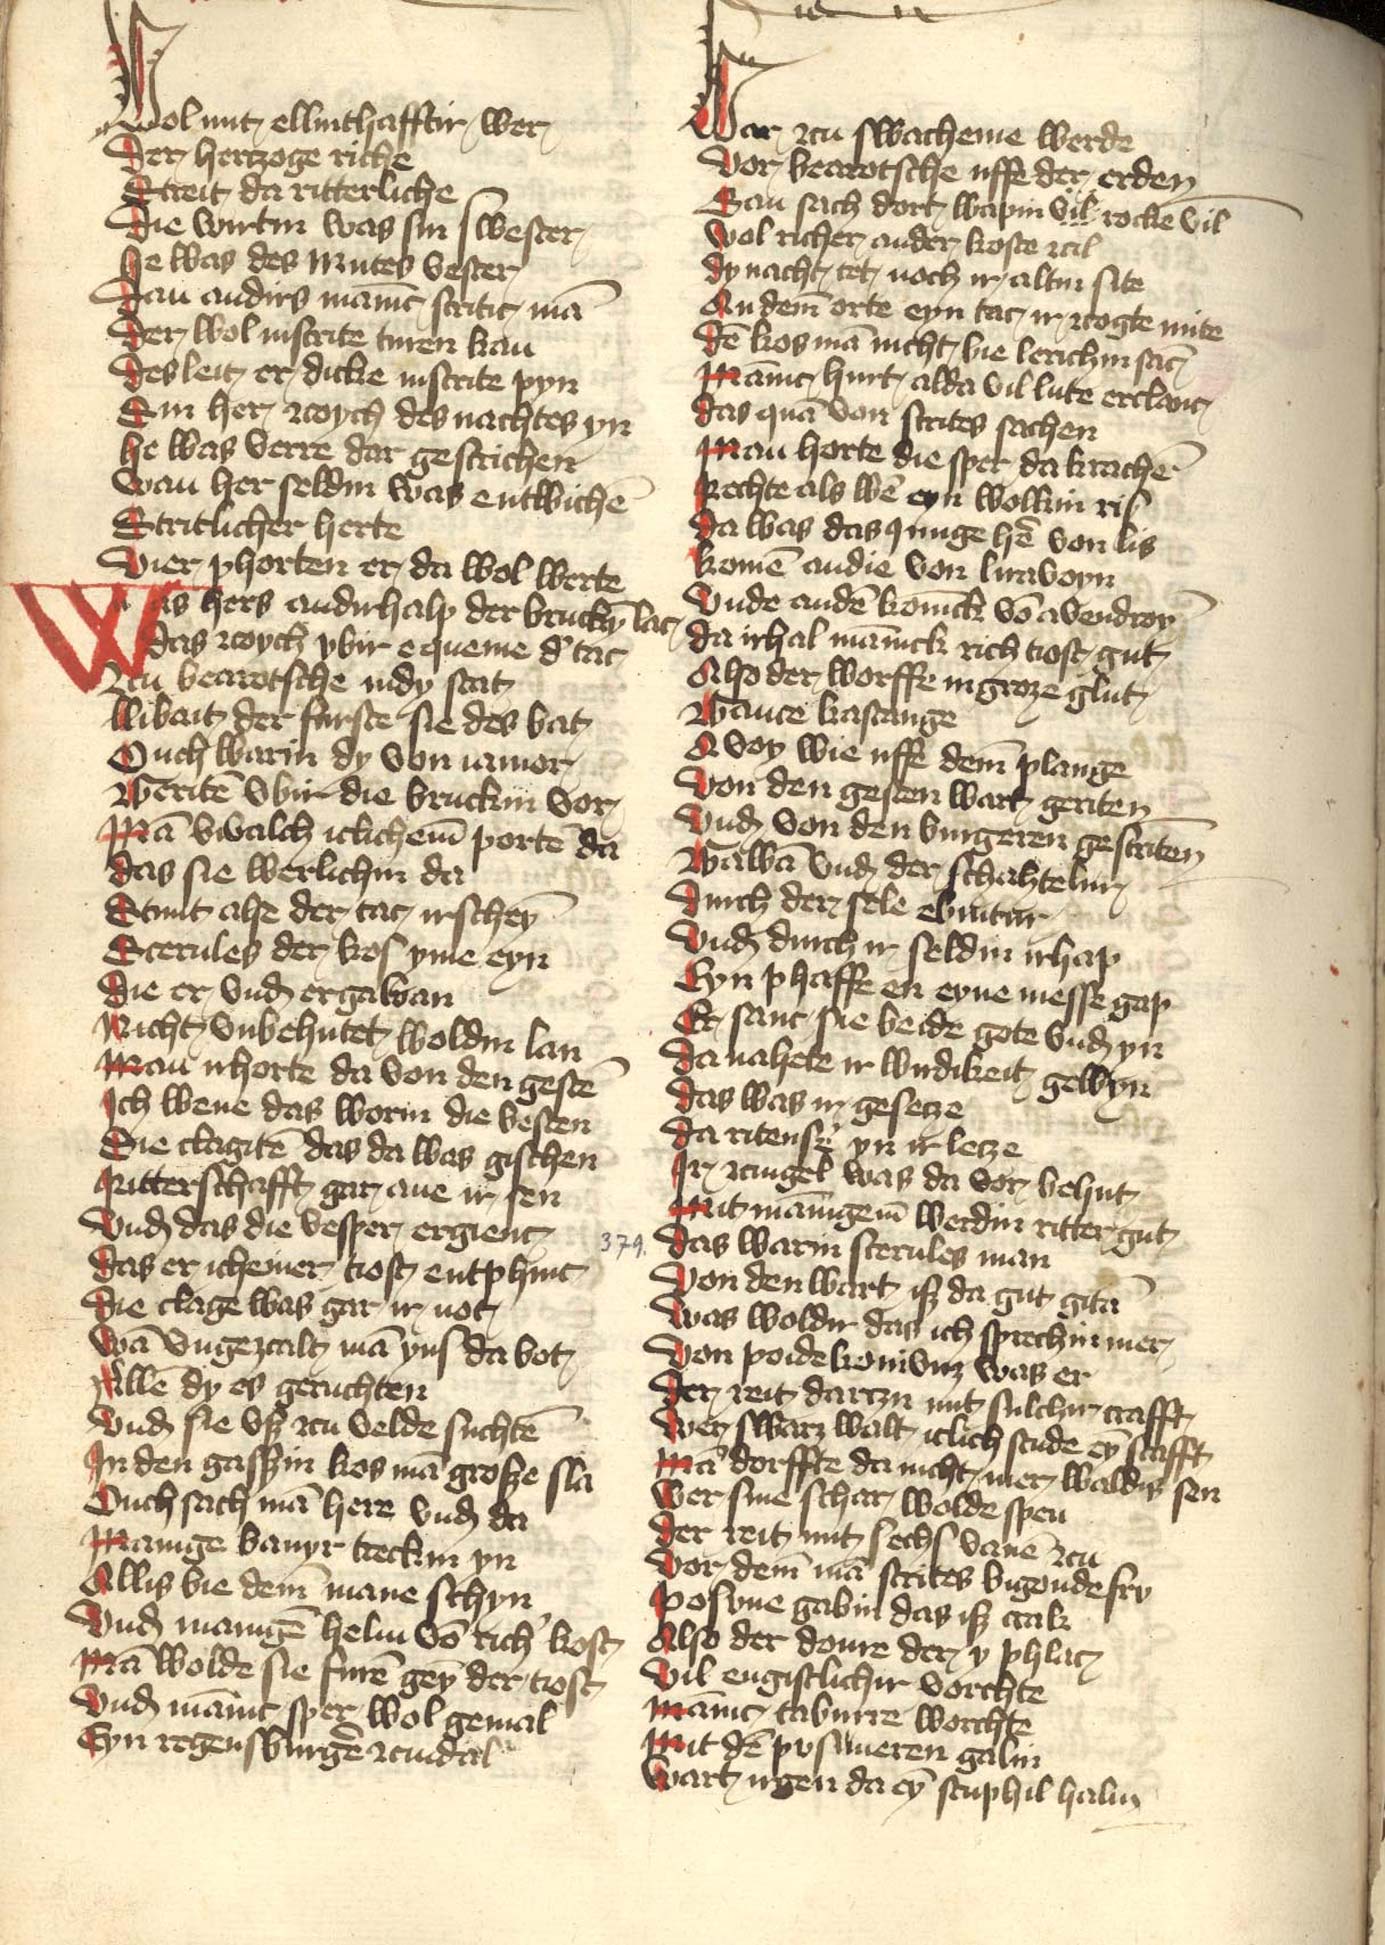 Wol mit ellinthafftir wer
Der hertzoge riche
Streit da ritterliche
Die wirtin was sin swester
He was des mutes vester
Dan andirs manic stritic mā
Der wol in strite turen kan
Des leit er dicke in strite pyn
Ein her zcoych des nachtes yn
He was verre dar gestrichen
Wan her seldin was entwichē
Stritlicher herte
Vier phorten er da wol werte
Was hers andirhalp der bruckin lac
Das zcoych ybir e queme d' tac
Zcu bearotsche in dy stat
llibaut der furste sie des bat
Ouch warin dy von iamor
Geritē vbir die bruckin vor
Mā bevalch iclichem̄ portē da
Das sie werlichin da
Stunt alse der tac irscheȳ
Scerules der kos yme eyn
Die er vnd ergawan
Nicht vnbehutet woldin lan
Man irhorte da von den gestē
Ich wene das worin die besten
Die clagitē das da was gischen
Ritterschafft gar ane ir sen
Vnd das die vesper ergienc
Das er icheiner tiost entphinc
Die clage was gar ir not
Wā vngezcalt mā yns da bot
Allē dy es geruchten
Vnd sie vſz zcu velde suchtē
In den gaſzin kos mā groſze sla
Ouch sach mā here vnd da
Manige banyr treckin yn
Allis bie dem̄ mane schyn
Vnd manigē helm vō rich' kost
Mā wolde sie furē geȳ der tiost
Vnd manic sper wol gemal
Eyn regensburgē zcindal
War zcu swacheme werde
Vor bearotsche uffe der erden
San sach dort wapin vil rocke vil
Wol richer ander koste zcil
Dy nacht tet noch ir altin site
An dem̄ orte eyn tac ir zcogte mite
Dē kos mā nicht bie lerichin sāc
Manic hurt alda vil lute erclanc
Das quā von strites sachen
Man horte die sper da krachē
Rechte als wē eyn wolkin ris
Da was das iunge hē von lis
Komē an die von liravoyn
Vnde an dē konick vō avendroy
Da irhal manick rich tiost gut
Also der worffe in groze glut
Gance kastange
Avoy wie uffe dem̄ plange
Von den gesten wart geriten
Vnd von den burgeren gestriten
Gawā vnd der schahteliur
Durch der sele ebintur
Vnd durch ir seldin irhap
Eyn phaffe en eyne messe gap
Er sanc sie beide gote vnd yn
Da nahete ir wirdikeit gewyn
Das was ir gesetze
Da riten sy yn ir letze
Ir zcingel was da vor behut
Mit manigem̄ werdin ritter gut
379.
Das warin scerules man
Von den wart iſz da gut gitā
Was woldir das ich sprechin mer
Von poidekoniunz was er
Der reit darczu mit sulchir crafft
Wer swarz walt iclich stude eȳ scafft
Mā dorffte da nicht mer waldis sen
Wer sine schar wolde spen
Der reit mit sechs vanē zcu
Vor dem̄ mā strites bigonde fry
Posyne gabin das iſz crak
Also der donre der y phlac
Vil engistlichir vorchte
Manic taburre worchte
Mit dē posuneren galin
Wart irgen da eȳ stuphil halin